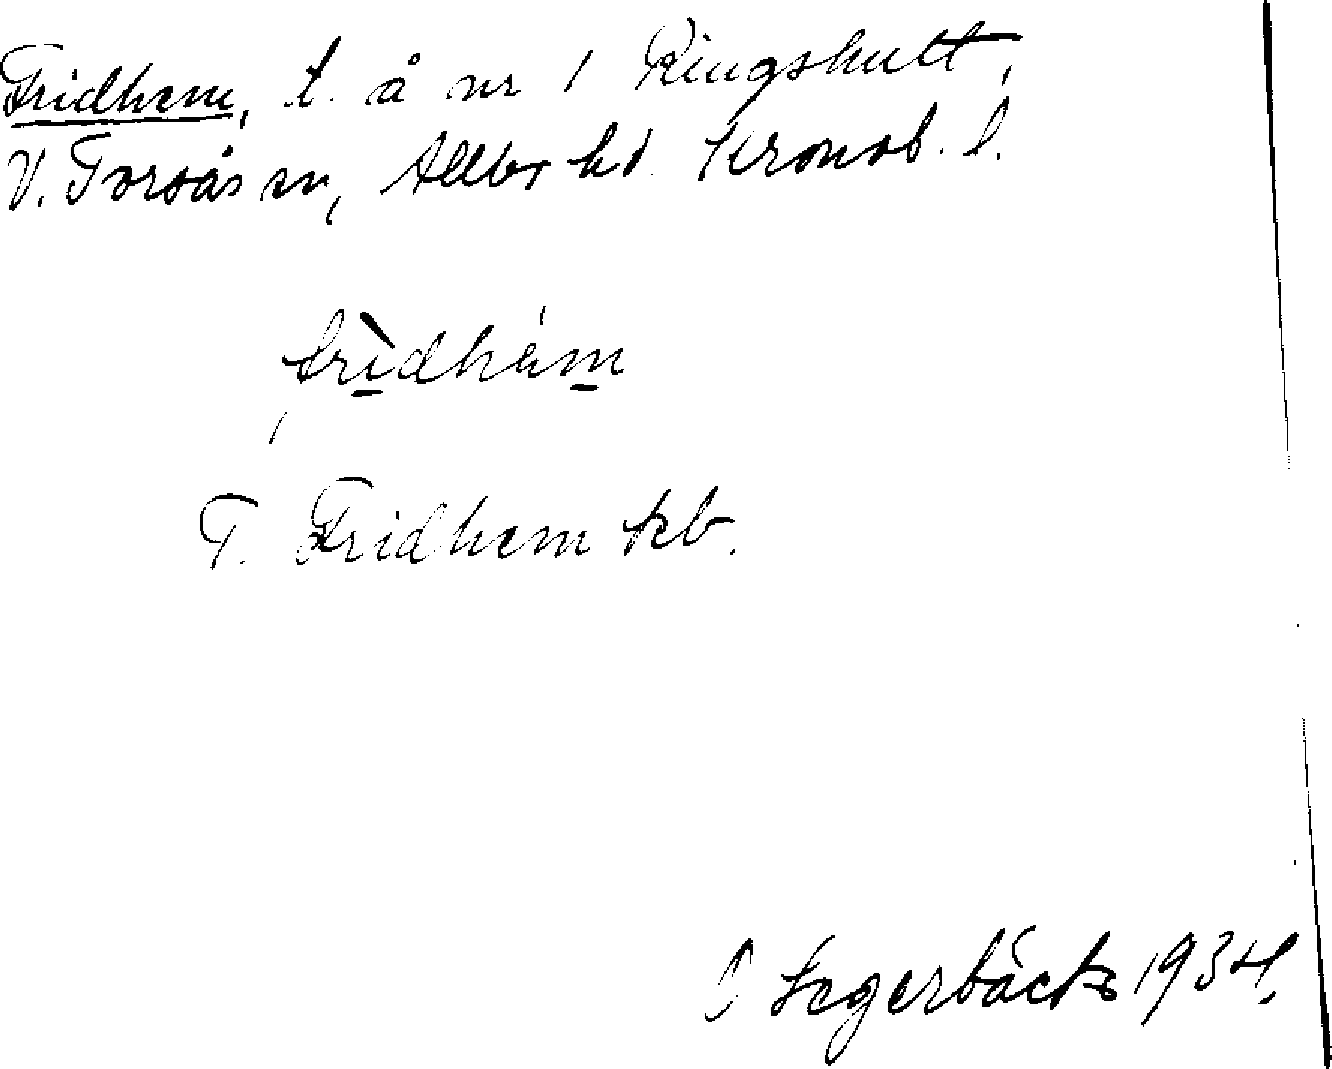 Fridhem, t. å nr 1 Ringshult,
V. Torsås sn, Allbo hd. Kronob. l.
frìdhém
T. Fridhem kb.
Segerbäck 1934.